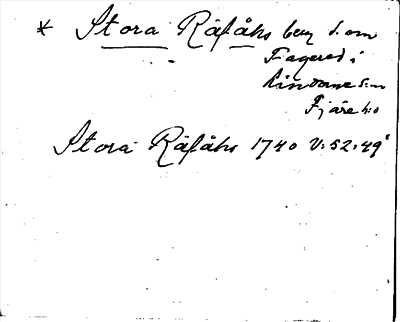 * Stora Räfåhs berg s. om
Fagered i
Lindome s:n
Fjäre h:o
Stora Räfåhs 1740 V:52:49